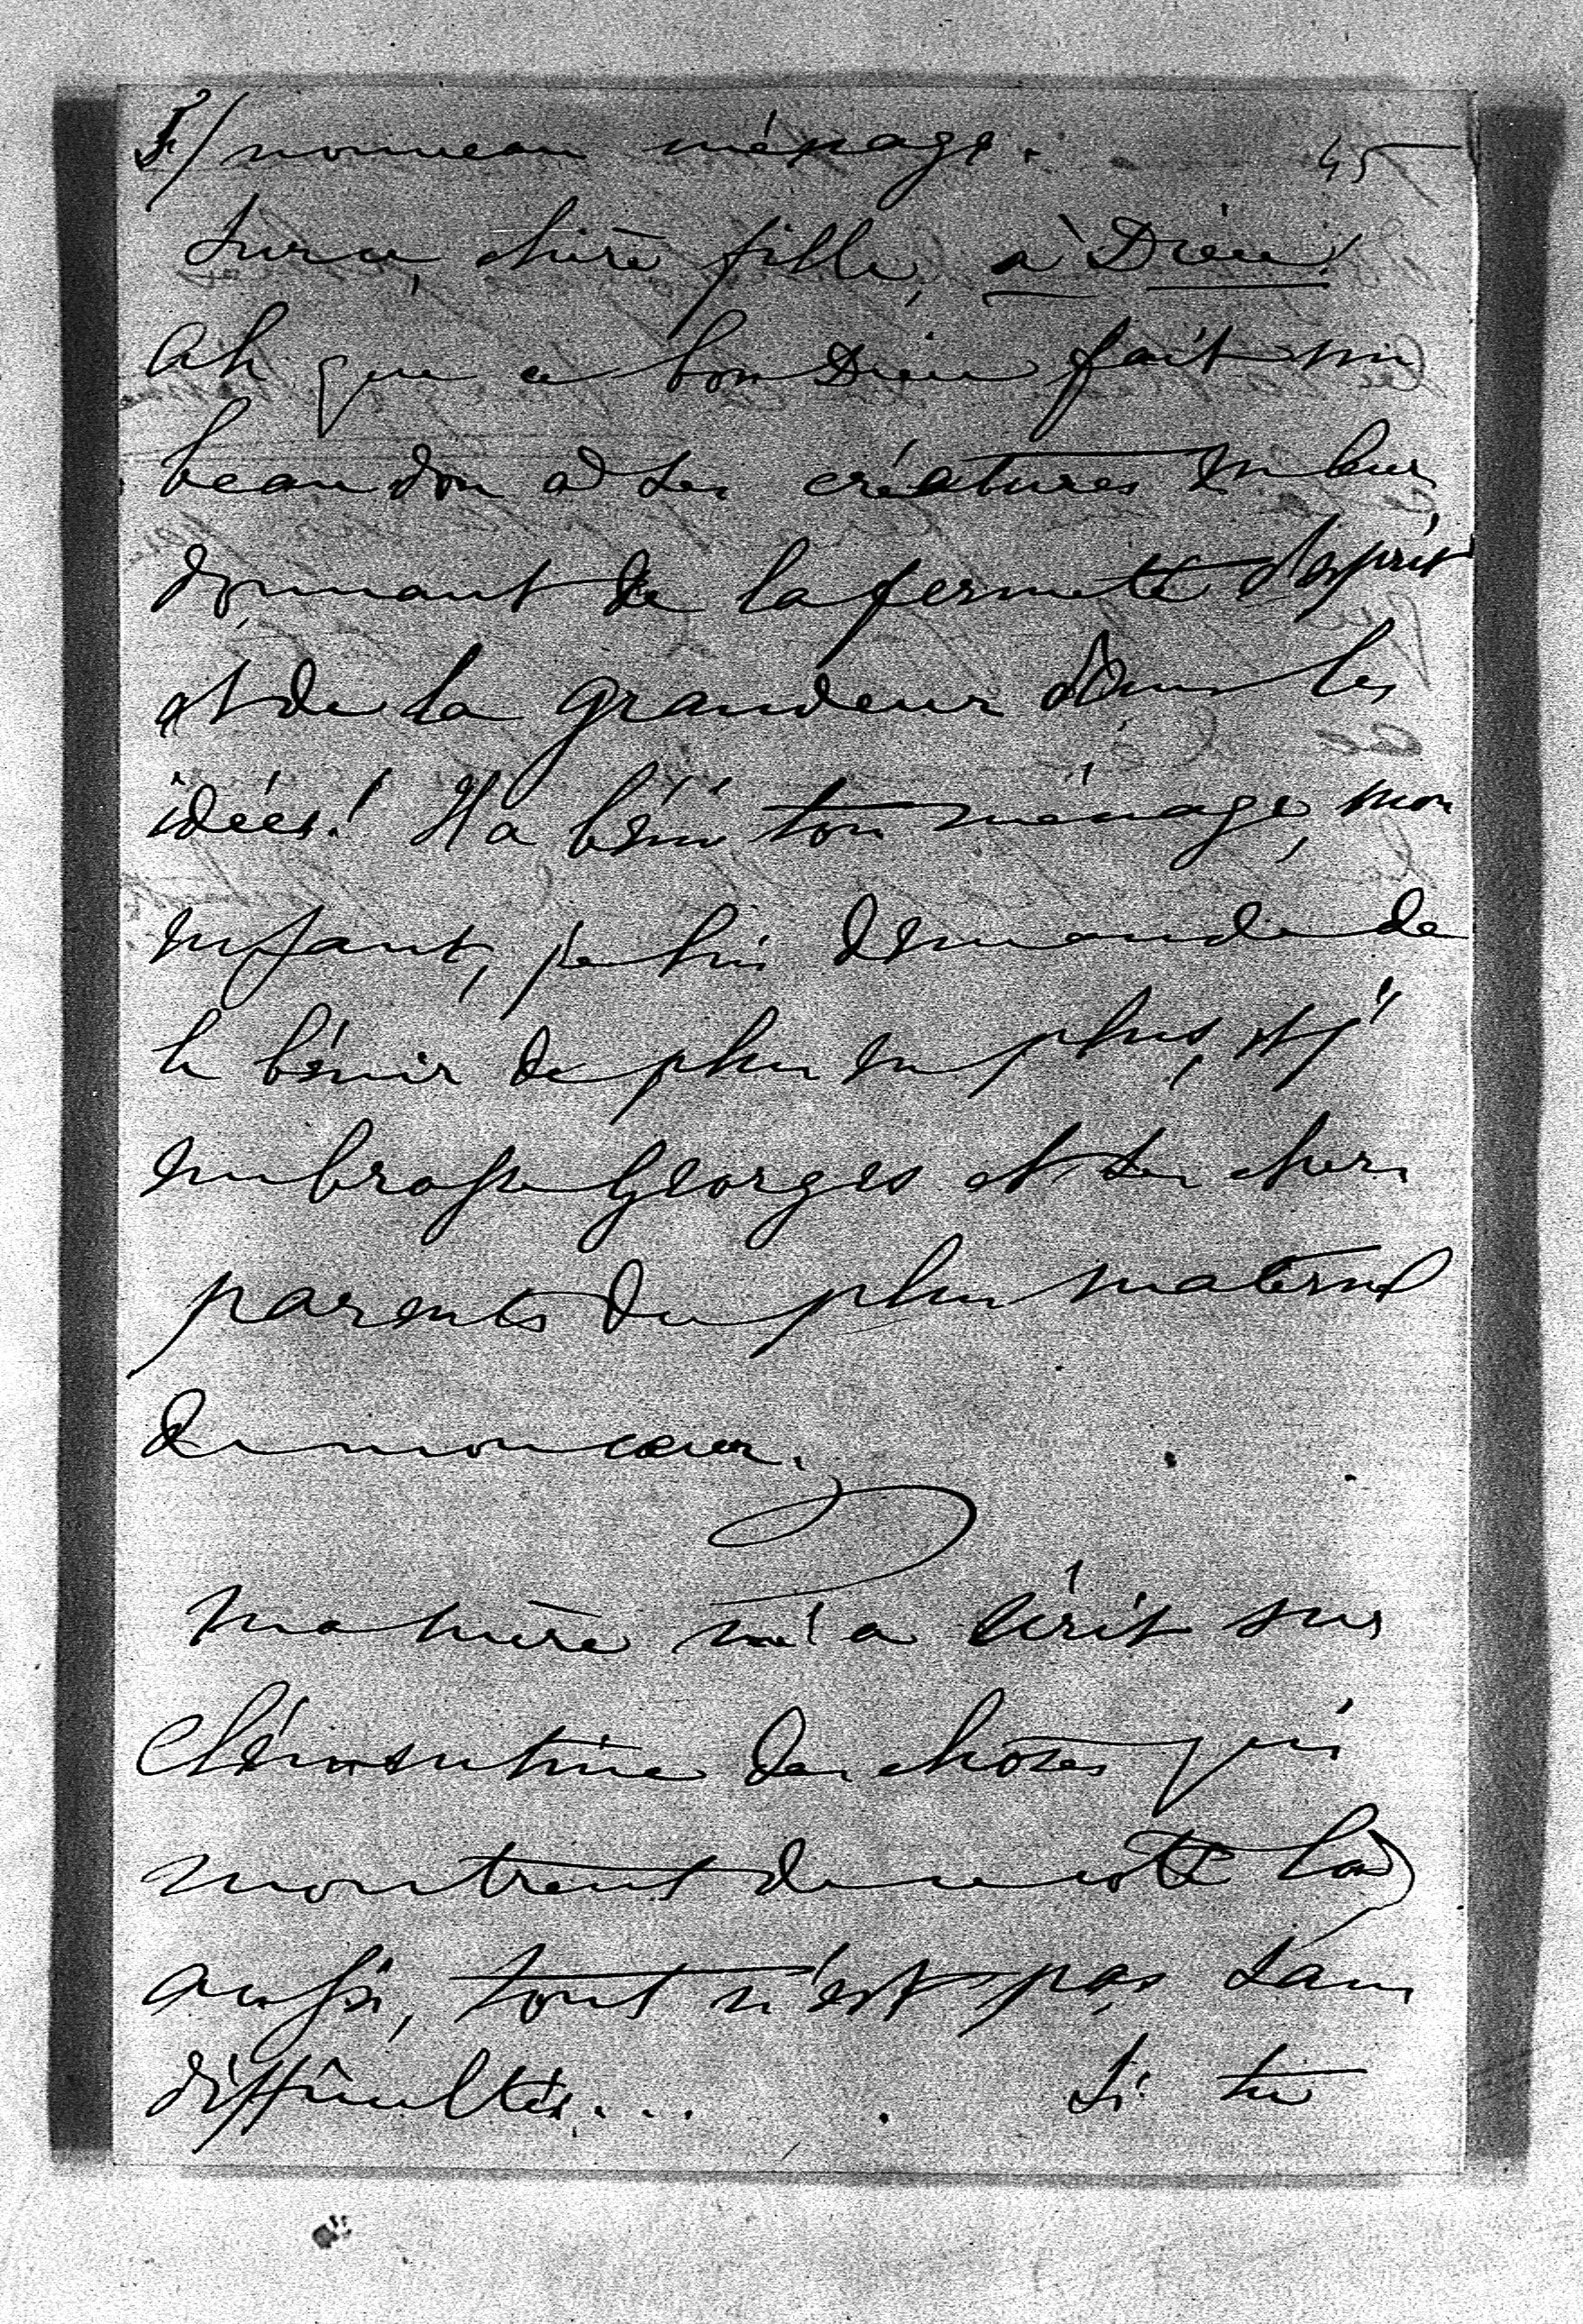 nouveau ménage. 45
chère fille, à Dieu!
Ah que ce bon Dieu fait un
beau don à ses créatures en leur
donnant de la fermeté d'esprit
et de la grandeur dans les
idées! Il a béni ton ménage, mon
enfant, je lui demande de
le bénir de plus en plus, et j'
embrasse Georges et ses chers
parents du plus maternel
de mon cœur.
Ma mère m'a écrit sur
Clémentine des choses qui
montrent de ce côté là
aussi, tout n'est pas sans
difficultés... Si tu